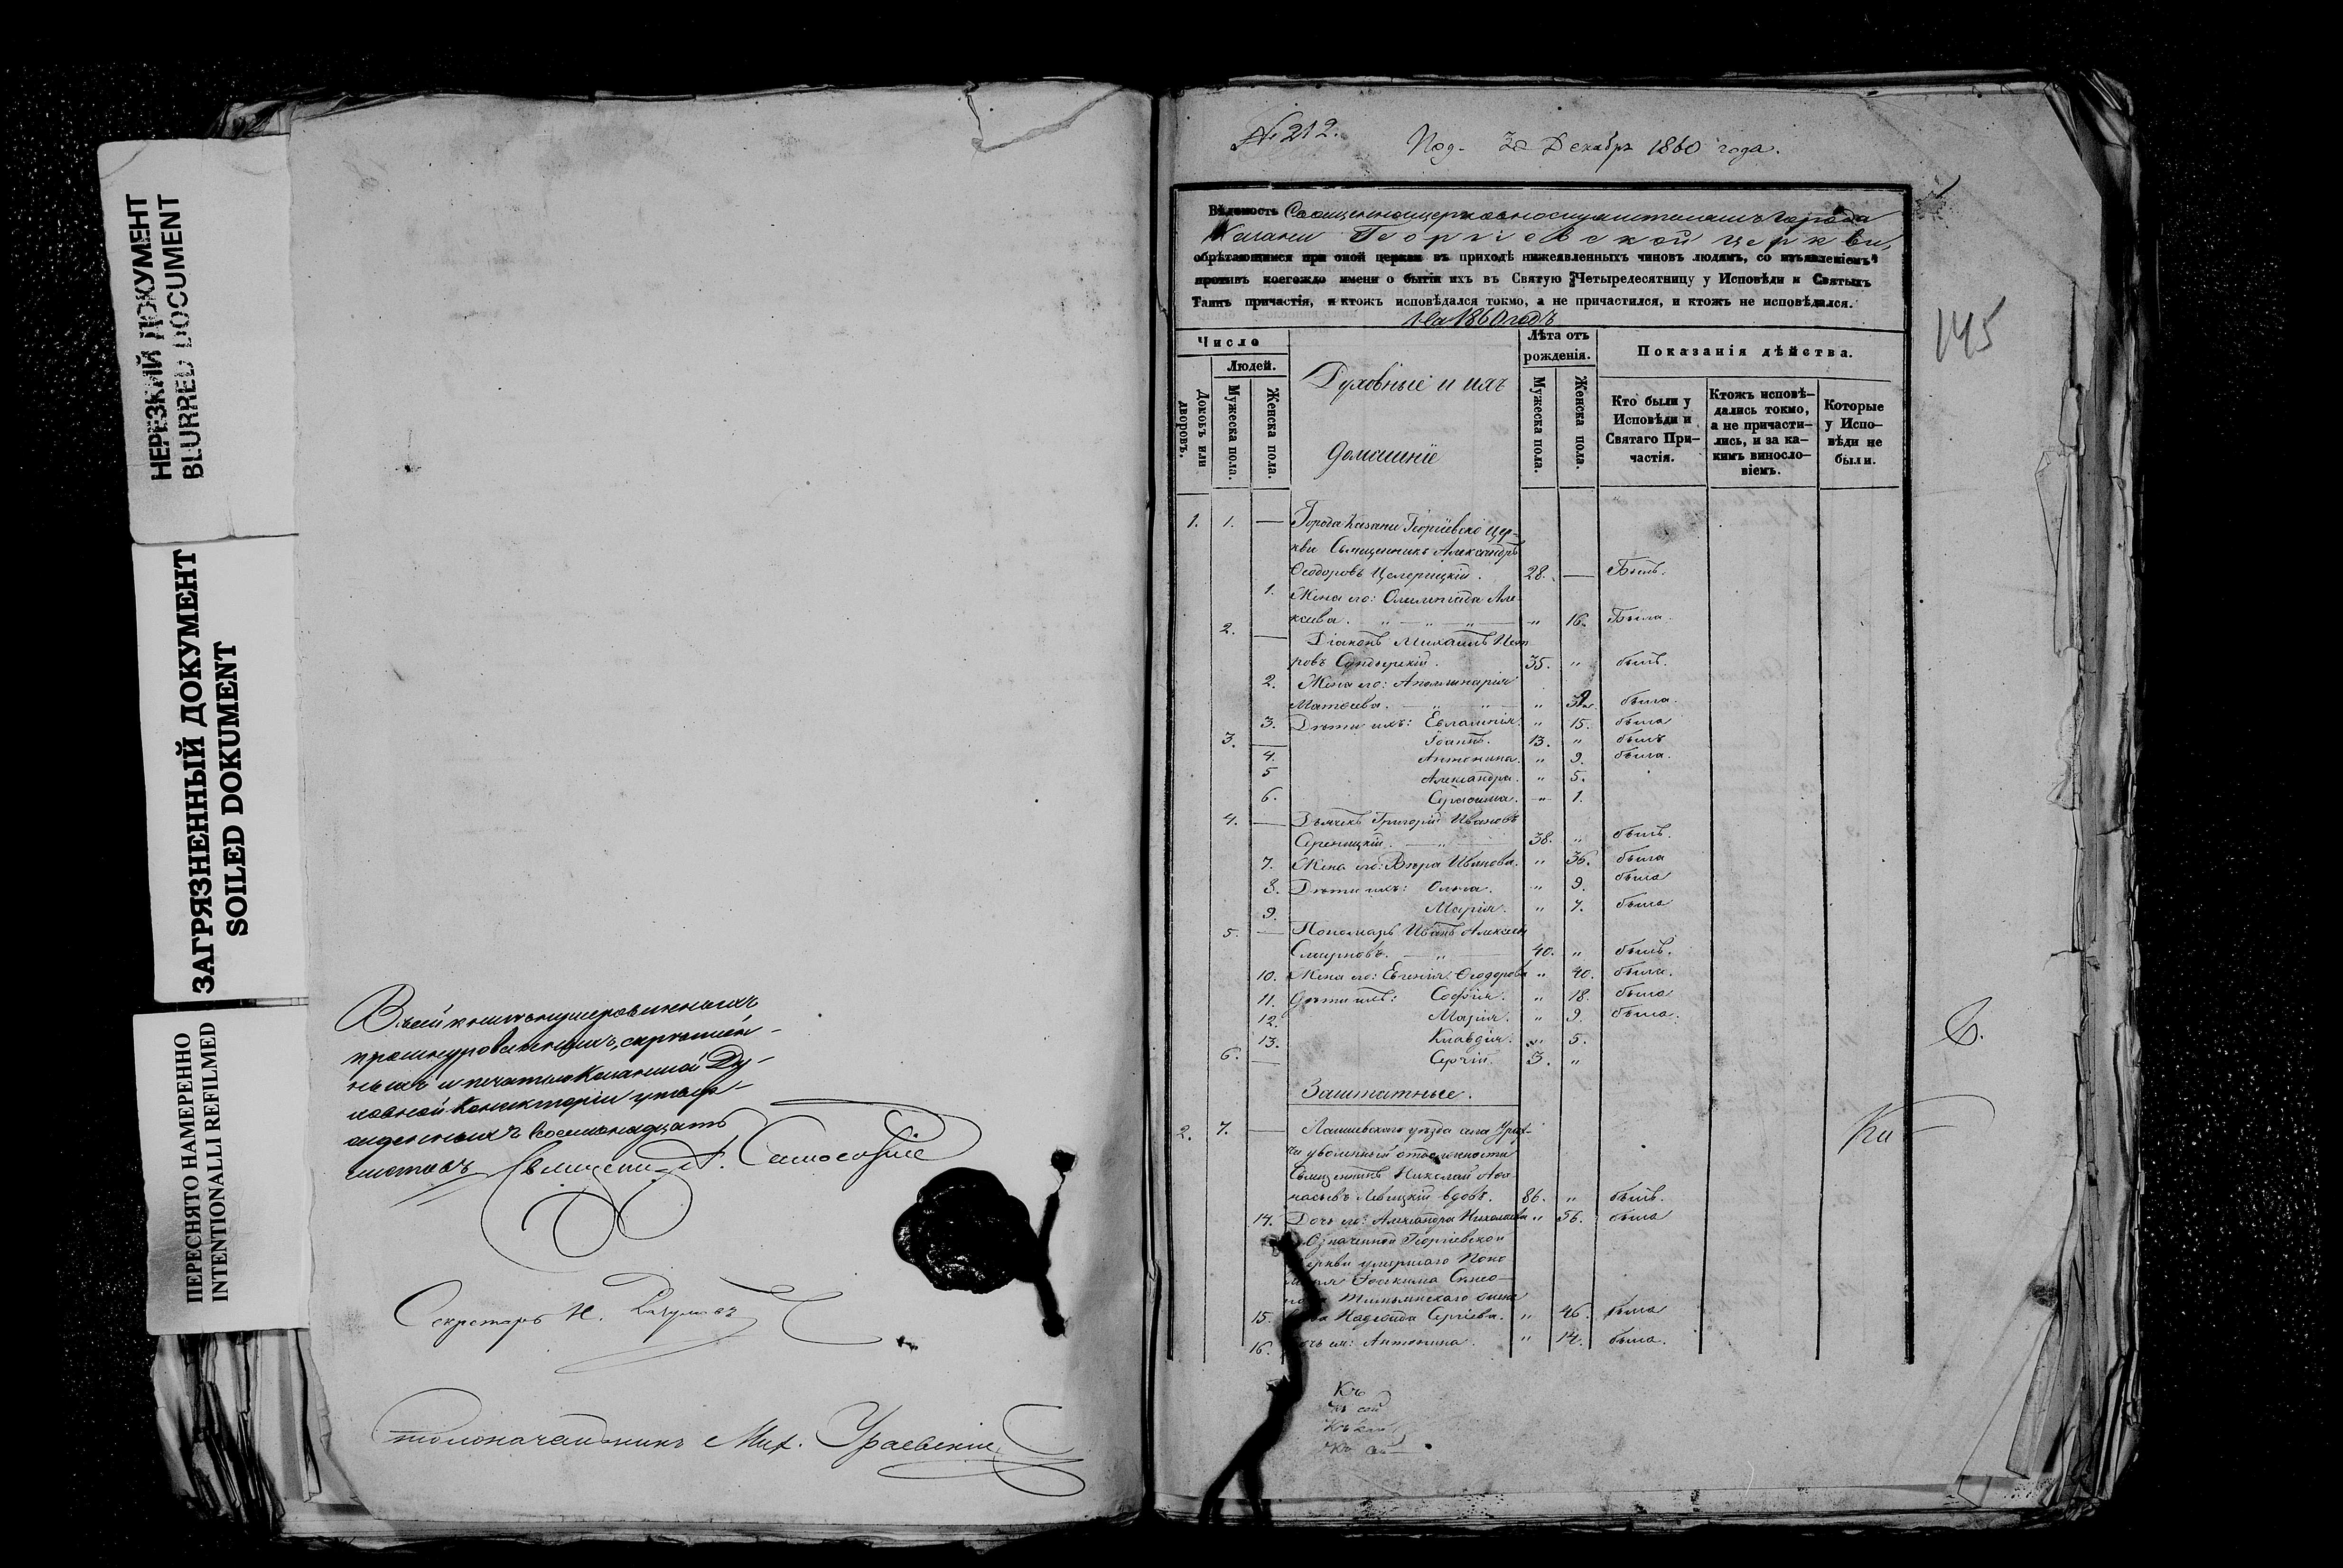 НЕРЕЗКИЙ ДОКУМЕНТ
BLURRED DOCUMENT
ЗАГРЯЗНЕННЫЙ ДОКУМЕНТ
SOILED DOKUMENT
ПЕРЕСНЯТО НАМЕРЕННО
INTENTIONALLI REFILMED
В сей книге нумерованныхъ
прошнурованныхъ, скреплен-
ныхъ и печатью Казанской Ду-
ховной Консисторіи утвер-
жденныхъ восемнадцать
листовъ Священн. А.
Секретарь Н.
Столоначальникъ Мих. Ураевскій
№ 212.
Под. 30 Декабря 1860 года.
Вѣдомость Священноцерковнослужителямъ города
Казани Георгіевской церкви,
обрѣтающимся при оной церкви въ приходѣ нижеявленныхъ чиновъ людямъ, со изъявленіемъ
противъ коегождо имени о бытіи ихъ въ Святую Четыредесятницу у Исповѣди и Святыхъ
Таинъ причастія, и ктожъ исповѣдался токмо, а не причастился, и ктожъ не исповѣдался.
На 1860 годъ
145
Число
Людей.
Домовъ или дворовъ.
Мужеска пола.
Женска пола.
Духовные и ихъ
домашніе
Лѣта отъ рожденія.
Мужеска пола.
Женска пола.
Показанія дѣйства.
Кто были у Исповѣди и Святаго Причастія.
Ктожъ исповѣ-дались токмо, а не причасти-лись, и за ка-кимъ виносло-віемъ.
Которые у Испо-вѣди не были.
1. 1. — Города Казани Георгіевской цер-
кви Священникъ Александръ
Ѳеодоровъ 28. — Былъ.
1. Жена его: Олимпіада Але-
ксѣева. " " " " 16. Была.
2. — Діаконъ Михаилъ Пет
ровъ Сундырскій. 35. " былъ.
2. Жена его: Аполлинарія
Матѳеева. " " " была.
3. Дѣти ихъ: Евлампія. " 15. была
3. — Іоаннъ. 13. " былъ
4. Антонина. " 9. была.
5 Александра. " 5.
6. Серафима. " 1.
4. — Дьячекъ Григорій Ивановъ
" 38. " былъ.
7. Жена его: Вѣра Иванова. " 36. была
8. Дѣти ихъ: Ольга. " 9. была
9. Марія. " 7. была
5. — Пономарь Иванъ Алексѣевъ
Смирновъ. " 40. " былъ.
10. Жена его: Евгенія Ѳеодорова " 40. была.
11. Дѣти ихъ: Софія. " 18. была
12. Марія. " 9. была.
13. Клавдія. " 5.
6. — Сергій. 3. "
Заштатные.
2. 7. — Лаишевскаго уѣзда села
уволенный отъ должности
Священникъ Николай Аѳа-
насьевъ Левицкій вдовъ. 86. " былъ.
14. Дочь его: Александра Николаева " 56. была
Означенной Георгіевской
церкви умершаго Поно
маря Іоакима
15. Надежда Сергіева. " 46. была
16. Дочь ея: Антонина. " 14. была.